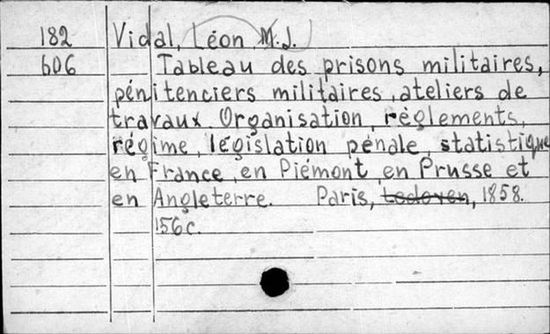 182 Vidal, Léon M.J.
606 Tableau des prisons militaires,
pénitenciers militaires, ateliers de
travaux. Organisation, règlements,
régime, législation pénale, statistique
en France, en Piémont en Prusse et
en Angleterre. Paris, Ledoyen, 1858.
156c.